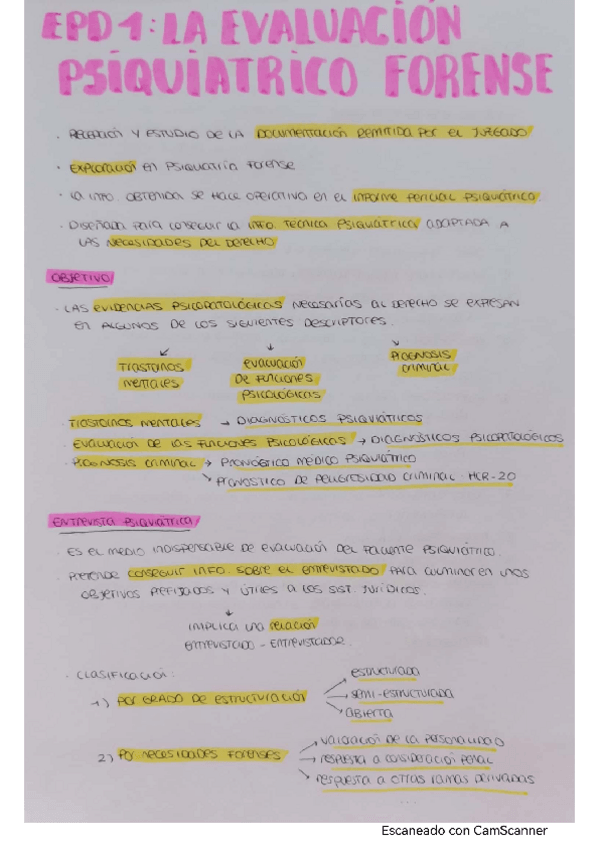 EPD 1: LA EVALUACIÓN
PSIQUIATRICO FORENSE
· RECEPCIÓN Y ESTUDIO DE LA DOCUMENTACIÓN REMITIDA POR EL JUZGADO
· EXPLORACIÓN EN PSIQUIATRÍA FORENSE
· LA INFO. OBTENIDA SE HACE OPERATIVO EN EL INFORME PERICIAL PSIQUIÁTRICO.
· DISEÑADA PARA CONSEGUIR LA INFO. TÉCNICA PSIQUIÁTRICA ADAPTADA A
LAS NECESIDADES DEL DERECHO
OBJETIVO
· LAS EVIDENCIAS PSICOPATOLÓGICAS NECESARIAS AL DERECHO SE EXPRESAN
EN ALGUNOS DE LOS SIGUIENTES DESCRIPTORES.
TRASTORNOS
MENTALES
EVALUACIÓN
DE FUNCIONES
PSICOLÓGICAS
PROGNOSIS
CRIMINAL
· TRASTORNOS MENTALES → DIAGNÓSTICOS PSIQUIÁTRICOS
· EVALUACIÓN DE LAS FUNCIONES PSICOLÓGICAS → DIAGNÓSTICOS PSICOPATOLÓGICOS
· PROGNOSIS CRIMINAL → PRONÓSTICO MEDICO PSIQUIÁTRICO
↘ PRONOSTICO DE PELIGROSIDAD CRIMINAL · HCR-20
ENTREVISTA PSIQUIÁTRICA
· ES EL MEDIO INDISPENSABLE DE EVALUACIÓN DEL PACIENTE PSIQUIÁTRICO.
· PRETENDE CONSEGUIR INFO. SOBRE EL ENTREVISTADO PARA CULMINAR EN UNOS
OBJETIVOS PREFIJADOS Y ÚTILES A LOS SIST. JURÍDICOS.
IMPLICA UNA RELACIÓN
ENTREVISTADO - ENTREVISTADOR.
· CLASIFICACIÓN:
1) POR GRADO DE ESTRUCTURACIÓN
ESTRUCTURADA
SEMI-ESTRUCTURADA
ABIERTA
2) POR NECESIDADES FORENSES
VALORACIÓN DE LA PERSONALIDAD
RESPUESTA A CONSIDERACIÓN PENAL
RESPUESTA A OTRAS RAMAS DERIVADAS
...
Escaneado con CamScanner